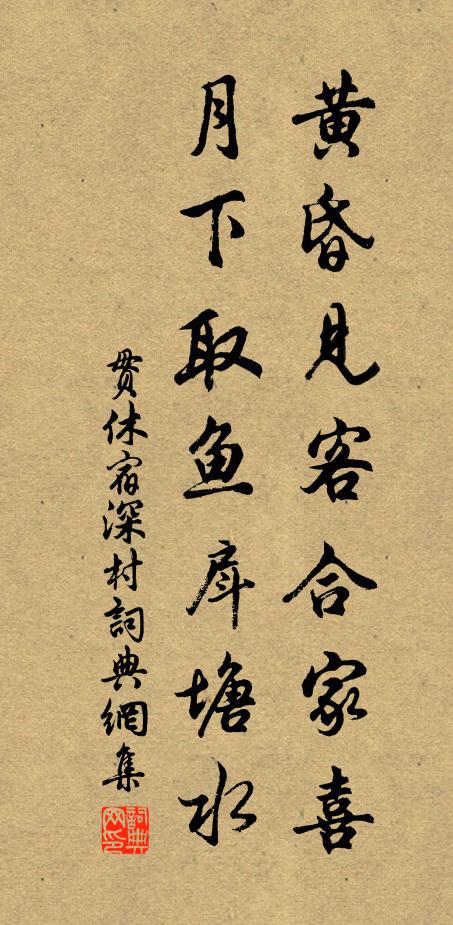 黃昏見客合家喜
月下取鱼戽塘水
贯休宿深村詞典網集
詞典网印